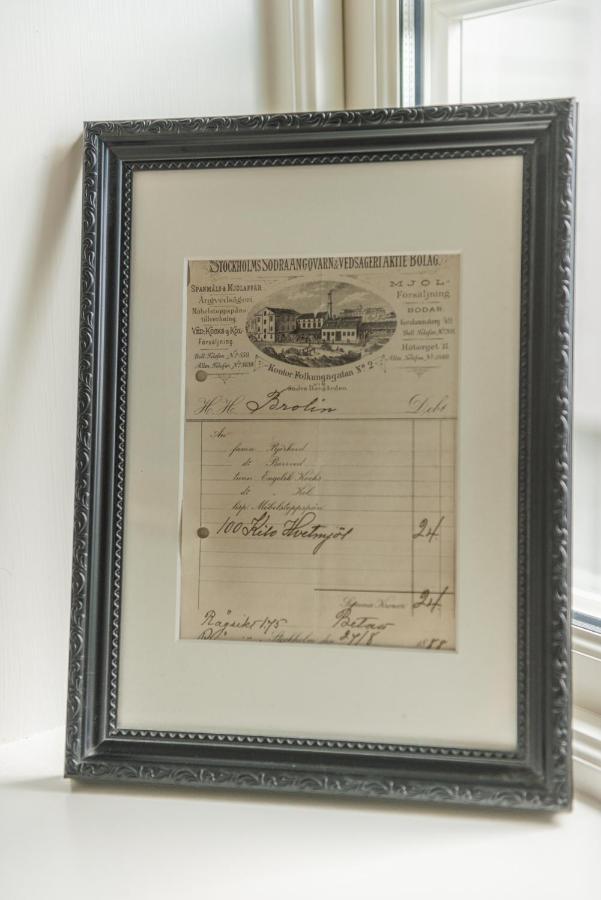 STOCKHOLMS SÖDRA ÅNGQVARN & VEDSÅGERI AKTIE BOLAG.
SPANMÅLS & MJÖLAFFÄR
Ångvedsågeri
Möbelstoppspåns
tillverkning
VED, KOKS & KOL
Försäljning
Bell. Telefon
Allm. Telefon
MJÖL-
Försäljning
BODAR.
Bell. Telefon
Hötorget
Allm. Telefon
Kontor Folkungagatan No 2
Södra Bangården
H. H. Brolin Debet
An
famn Björkved
dt Barrved
tunn Engelsk Koks
dt Kol
lisp. Möbelstoppspån
100 Kilo Hvetmjöl 24.
Summa Kronor 24.
Rågsikt 175 Betalt
Stockholm den 27/8 1888